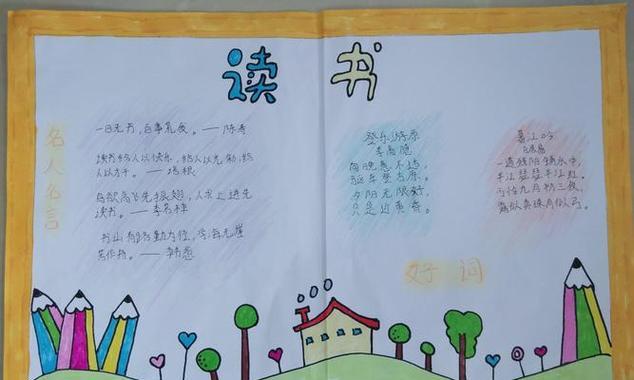 读书
名人名言
一日无书，百事荒废。——陈寿
读书给人以快乐、给人以光彩、给
人以才干。——培根
鸟欲高飞先振翅，人求上进先
读书。——李若禅
书山有路勤为径，学海无崖
苦作舟。——韩愈
登乐游原
李商隐
向晚意不适，
驱车登古原。
夕阳无限好，
只是近黄昏。
暮江吟
白居易
一道残阳铺水中，
半江瑟瑟半江红。
可怜九月初三夜，
露似真珠月似弓。
好词